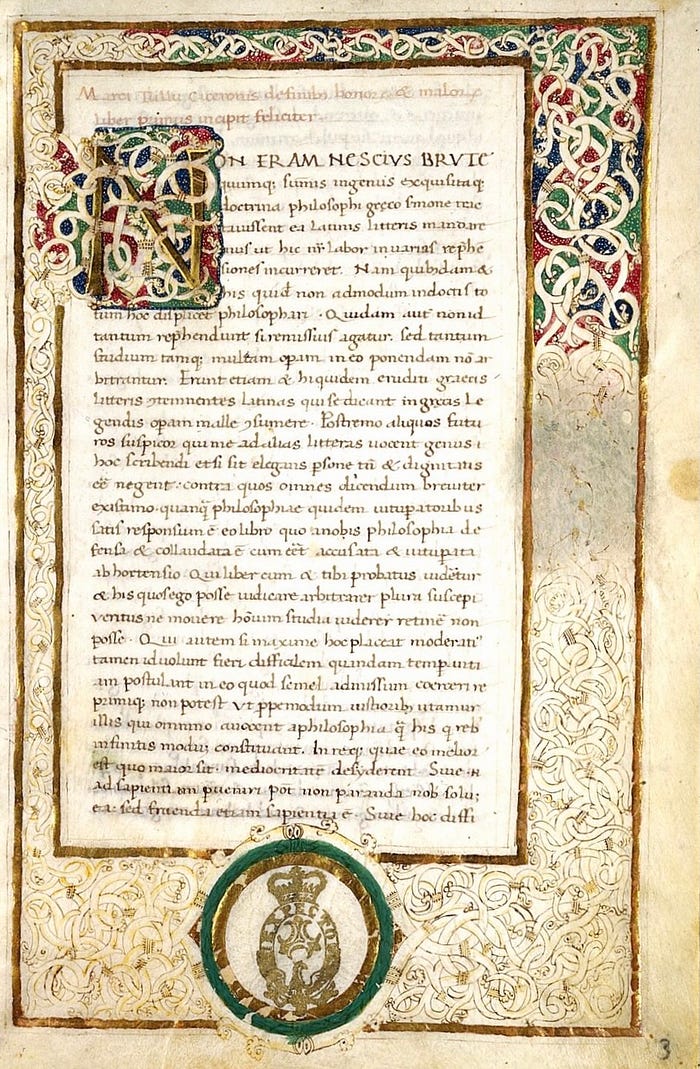 Marci Tullii Ciceronis de finibus bonor & malor
liber primus incipit feliciter
NON ERAM NESCIVS BRVTE
quumq; sumis ingeniis exquisitaq
doctrina philosophi greco smone trac
tavissent ea Latinis litteris mandare
mus ut hic nr labor in varias rephe
siones incurreret. Nam quibusdam &
his quid non admodum indoctis to
tum hoc displicet philosophari. Quidam aut non id
tantum rephendunt si remissius agatur. sed tantum
studium tamq; multam opam in eo ponendam no ar
bitrantur. Erunt etiam & hi quidem eruditi graecis
litteris contemnentes latinas qui se dicant in grecis Le
gendis opam malle consumere. Postremo aliquos futu
ros suspicor qui me ad alias litteras vocent genus
hoc scribendi etsi sit elegans psone tn & dignitatis
ee negent. contra quos omnes dicendum breviter
existimo. quanq philosophiae quidem vituperatoribus
satis responsum e eo libro quo a nobis philosophia de
fensa & collaudata e cum eet accusata & vituperata
ab hortensio. Qui liber cum & tibi probatus videretur
& his quos ego posse iudicare arbitrarer plura suscepi
veritus ne movere hominum studia viderer retinere non
posse. Qui autem si maxime hoc placeat moderati
tamen id volunt fieri difficilem quandam temperanti
am postulant in eo quod semel admissum coerceri re
primiq; non potest ut ppemodum iustioribus utamur
illis qui omnino avocent a philosophia q his q reb
infinitis modum constituant. In req; quae eo melior
est quo maior sit mediocritate desyderent. Sive
ad sapientiam pveniri pot non paranda nob solum
ea: sed fruenda etiam sapientia e. Sive hoc diffi
3